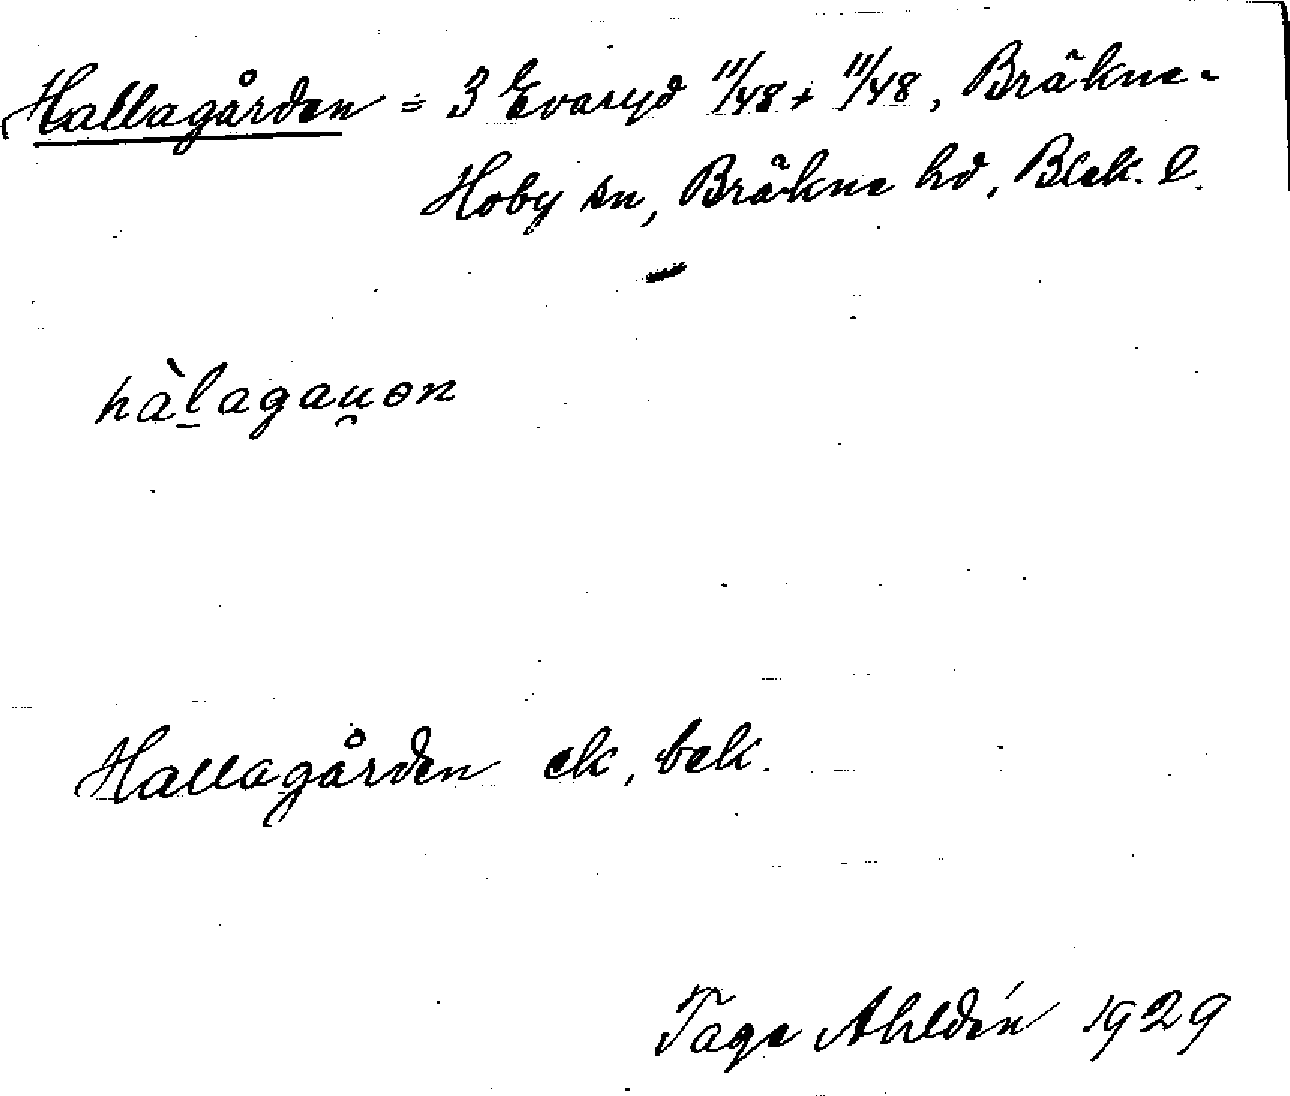 Hallagården = 3 Evaryd 11/48 + 11/48, Bräkne-
Hoby sn, Bräkne hd, Blek. l.
hàl̠agau̯ɵn
Hallagården ek, bek.
Tage Ahldén 1929